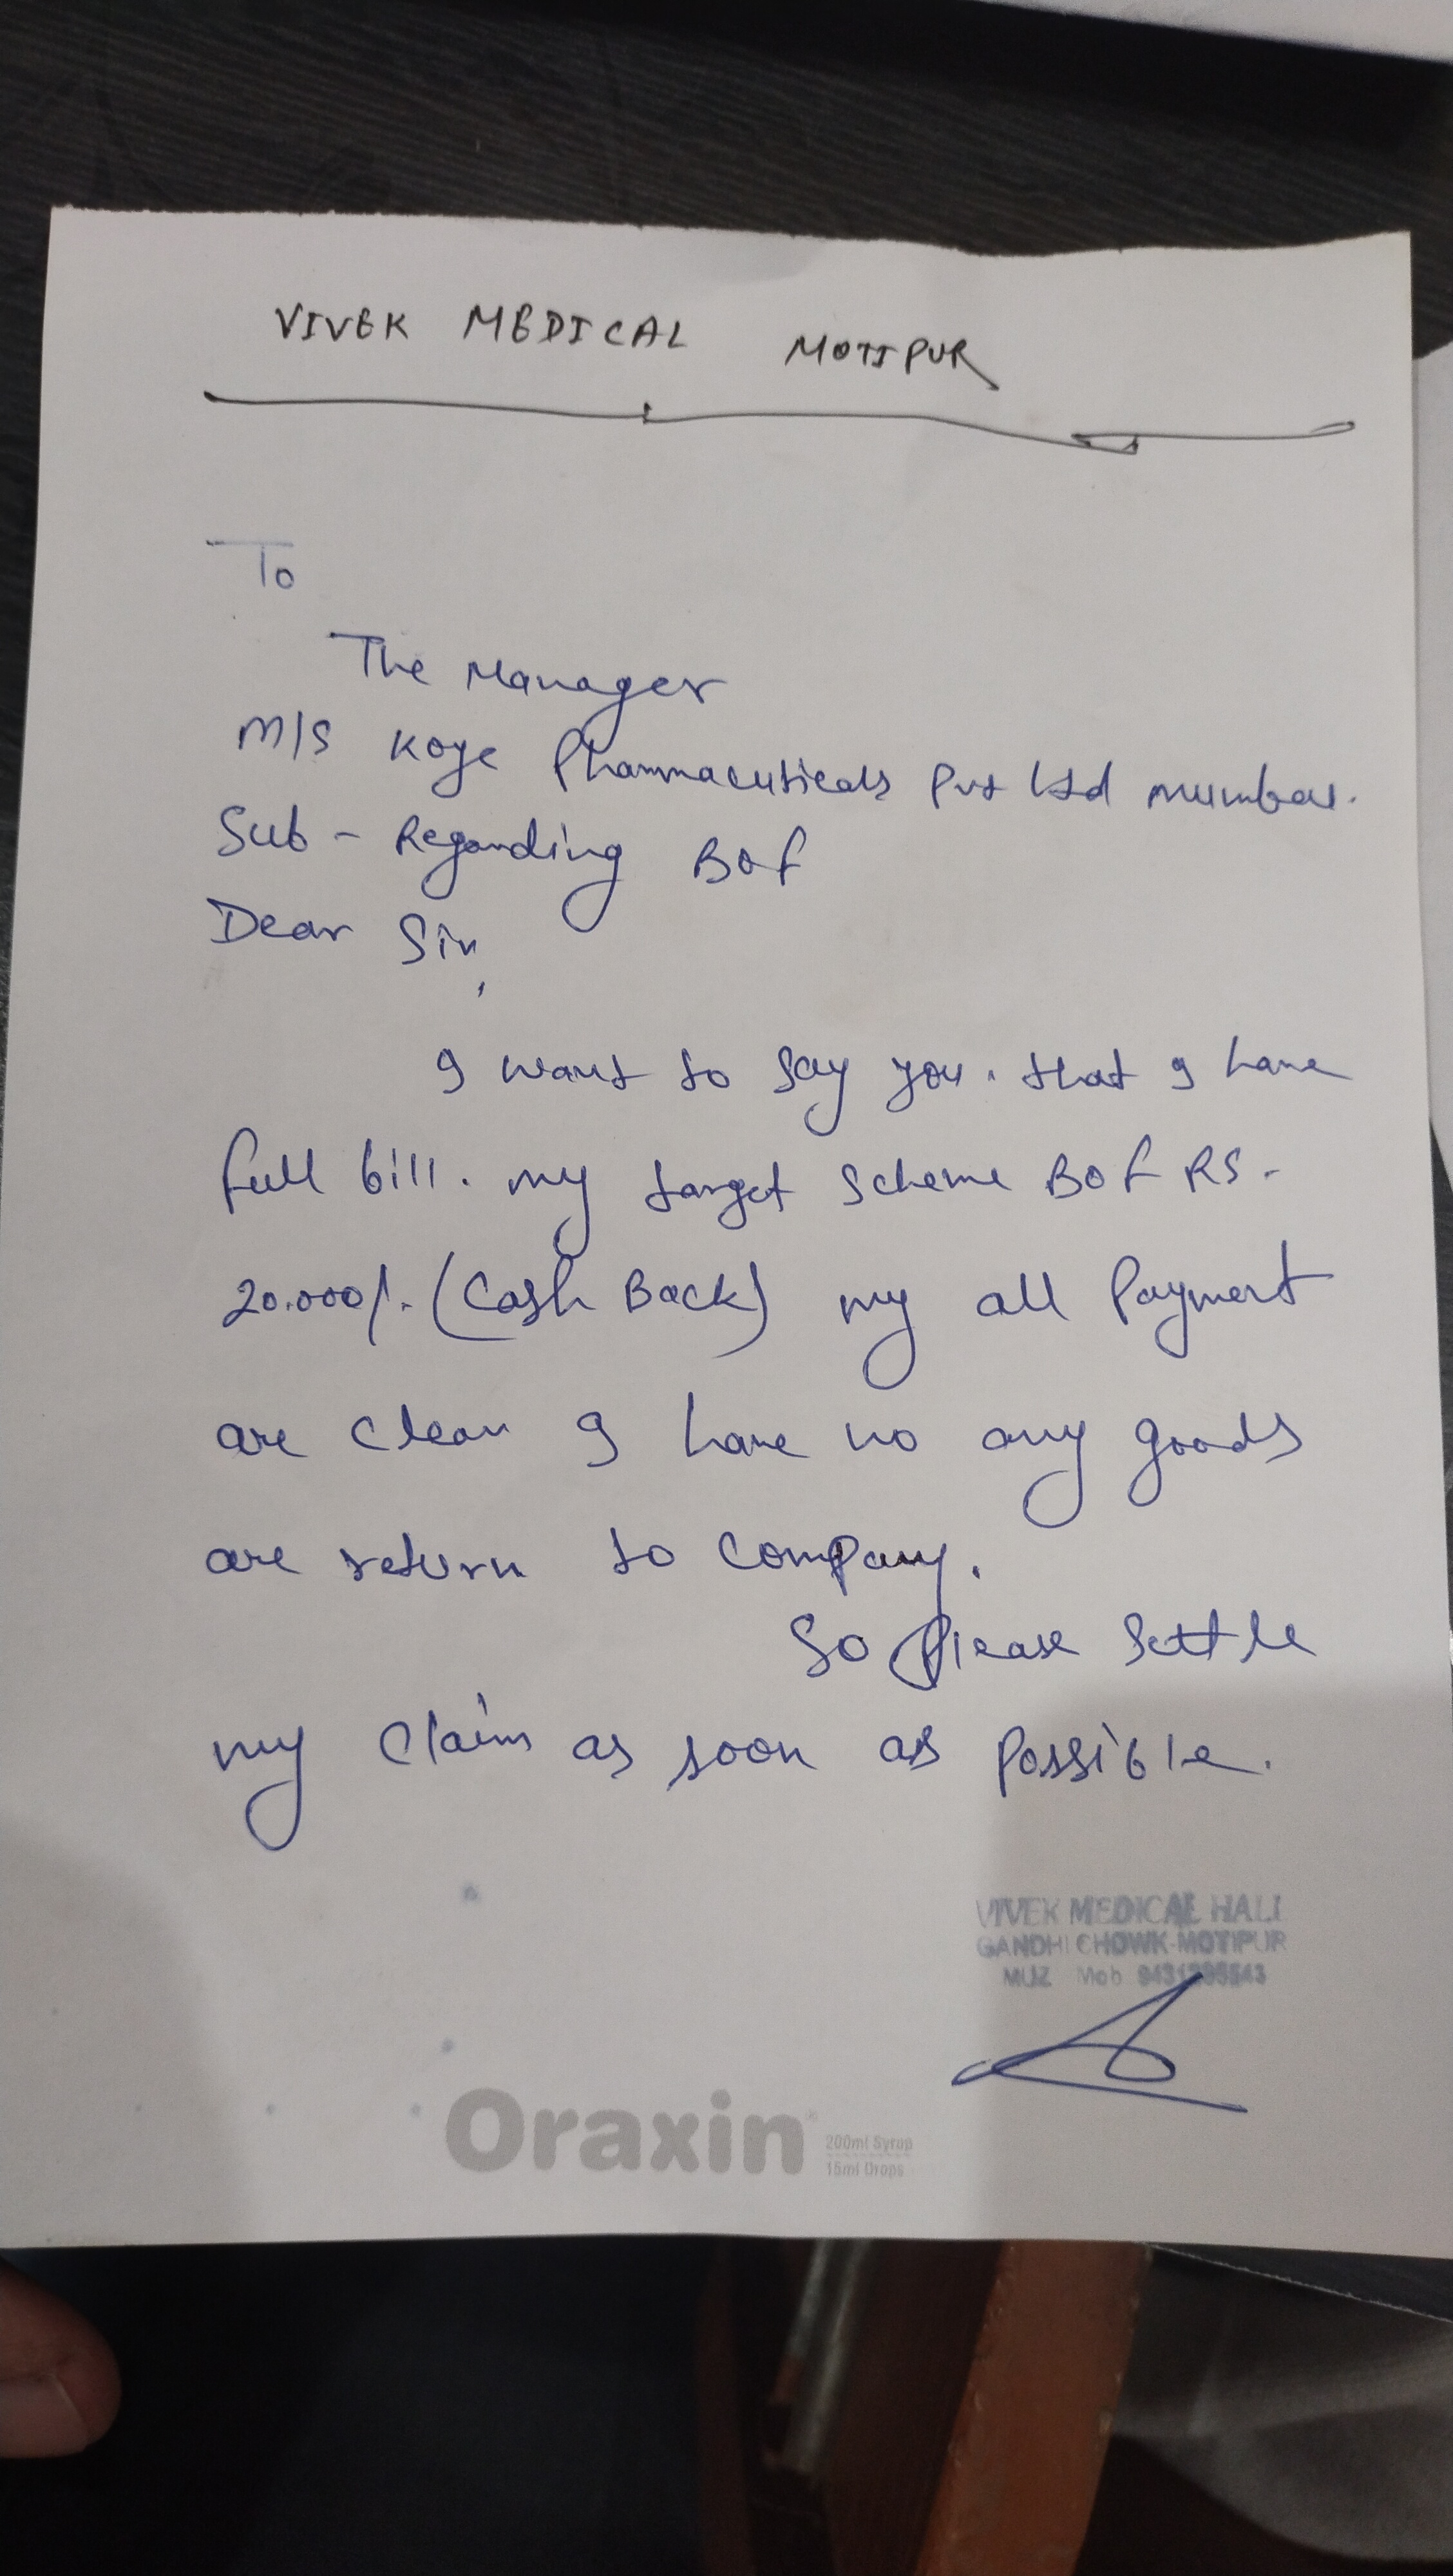 VIVEK MEDICAL MOTIPUR
To
The Manager
M/S Koye Pharmaceuticals Pvt Ltd Mumbai.
Sub - Regarding BOF
Dear Sir,
I want to say you. that I have
full bill. my target scheme BOF RS.
20.000/. (Cash Back) my all Payment
are clear I have no any goods
are return to Company.
So Please Settle
my claim as soon as Possible.
VIVEK MEDICAL HALL
GANDHI CHOWK-MOTIPUR
MUZ Mob
Oraxin
200ml Syrop
15ml Drops